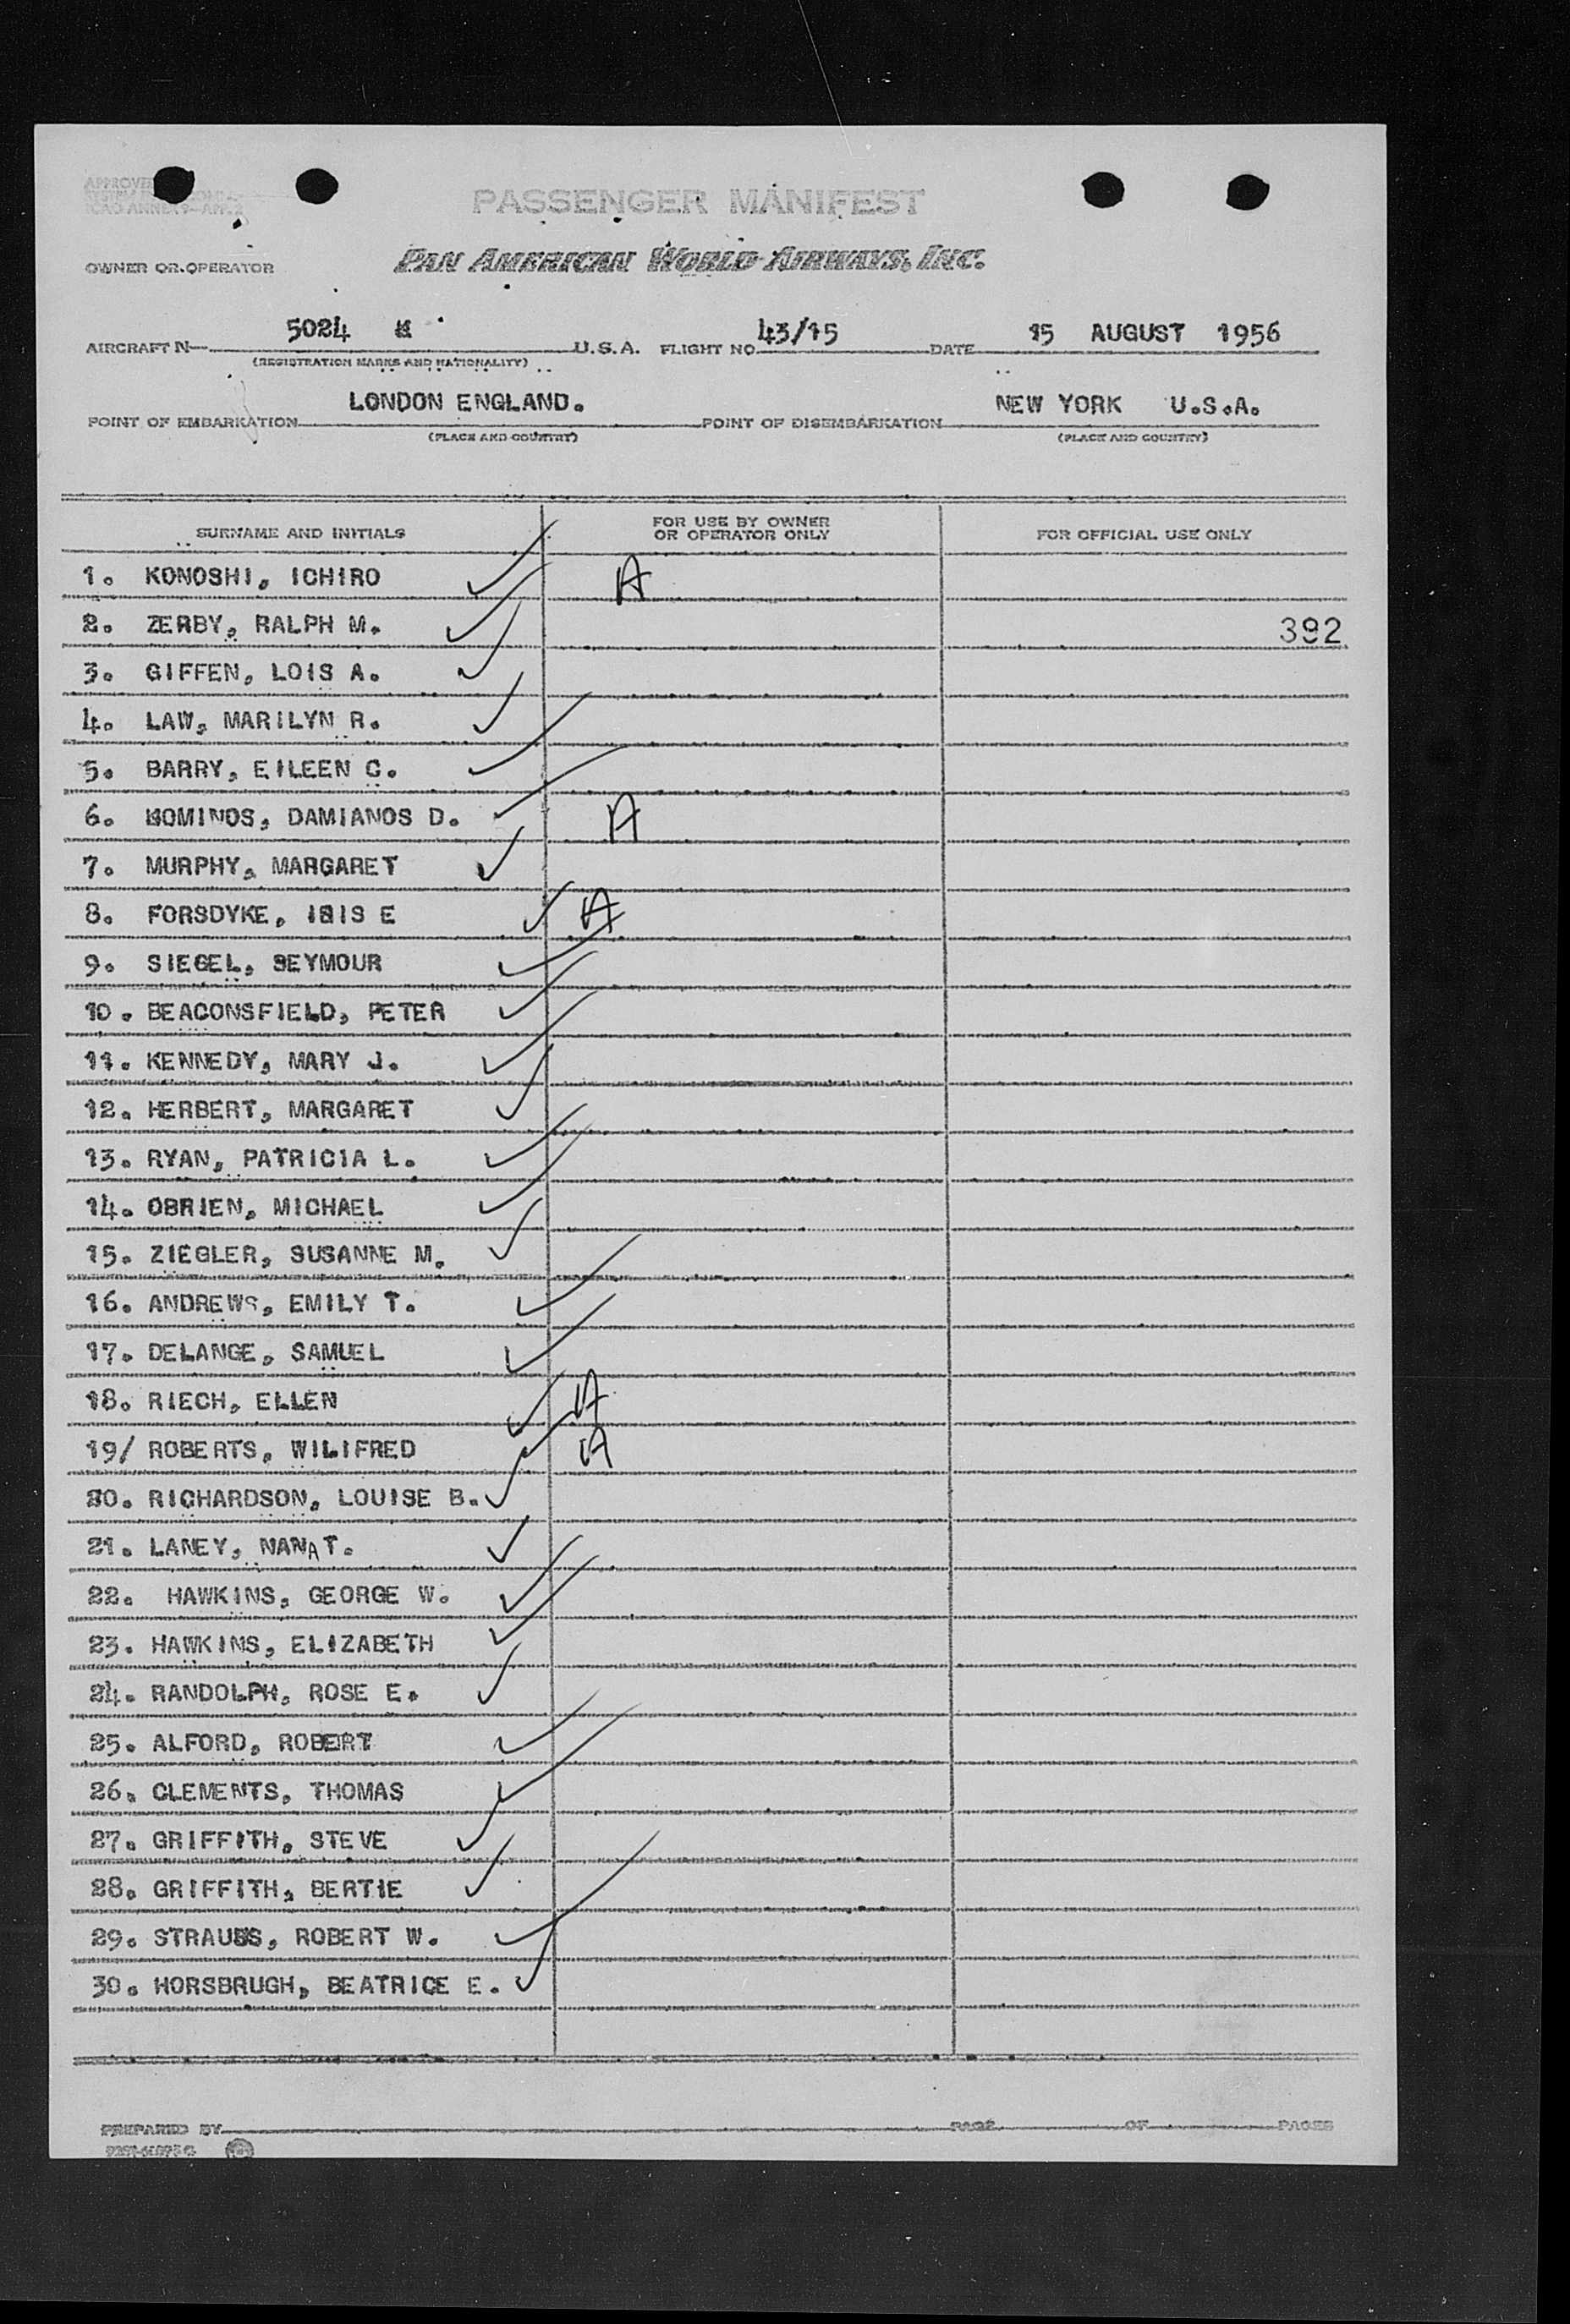 PASSENGER MANIFEST
OWNER OR OPERATOR PAN AMERICAN WORLD AIRWAYS, INC.
AIRCRAFT N— 5024 K U.S.A. FLIGHT NO 43/15 DATE 15 AUGUST 1956
(REGISTRATION MARKS AND NATIONALITY)
POINT OF EMBARKATION LONDON ENGLAND. POINT OF DISEMBARKATION NEW YORK U.S.A.
(PLACE AND COUNTRY) (PLACE AND COUNTRY)
SURNAME AND INITIALS FOR USE BY OWNER OR OPERATOR ONLY FOR OFFICIAL USE ONLY
1. KONOSHI, ICHIRO A
2. ZERBY, RALPH M. 392
3. GIFFEN, LOIS A.
4. LAW, MARILYN R.
5. BARRY, EILEEN C.
6. KOMINOS, DAMIANOS D. A
7. MURPHY, MARGARET
8. FORSDYKE, IRIS E A
9. SIEGEL, SEYMOUR
10. BEACONSFIELD, PETER
11. KENNEDY, MARY J.
12. HERBERT, MARGARET
13. RYAN, PATRICIA L.
14. OBRIEN, MICHAEL
15. ZIEGLER, SUSANNE M.
16. ANDREWS, EMILY T.
17. DELANGE, SAMUEL
18. RIECH, ELLEN A
19/ ROBERTS, WILIFRED A
20. RICHARDSON, LOUISE B.
21. LANEY, NANA T.
22. HAWKINS, GEORGE W.
23. HAWKINS, ELIZABETH
24. RANDOLPH, ROSE E.
25. ALFORD, ROBERT
26. CLEMENTS, THOMAS
27. GRIFFITH, STEVE
28. GRIFFITH, BERTIE
29. STRAUSS, ROBERT W.
30. HORSBRUGH, BEATRICE E.
PREPARED BY PAGE OF PAGES